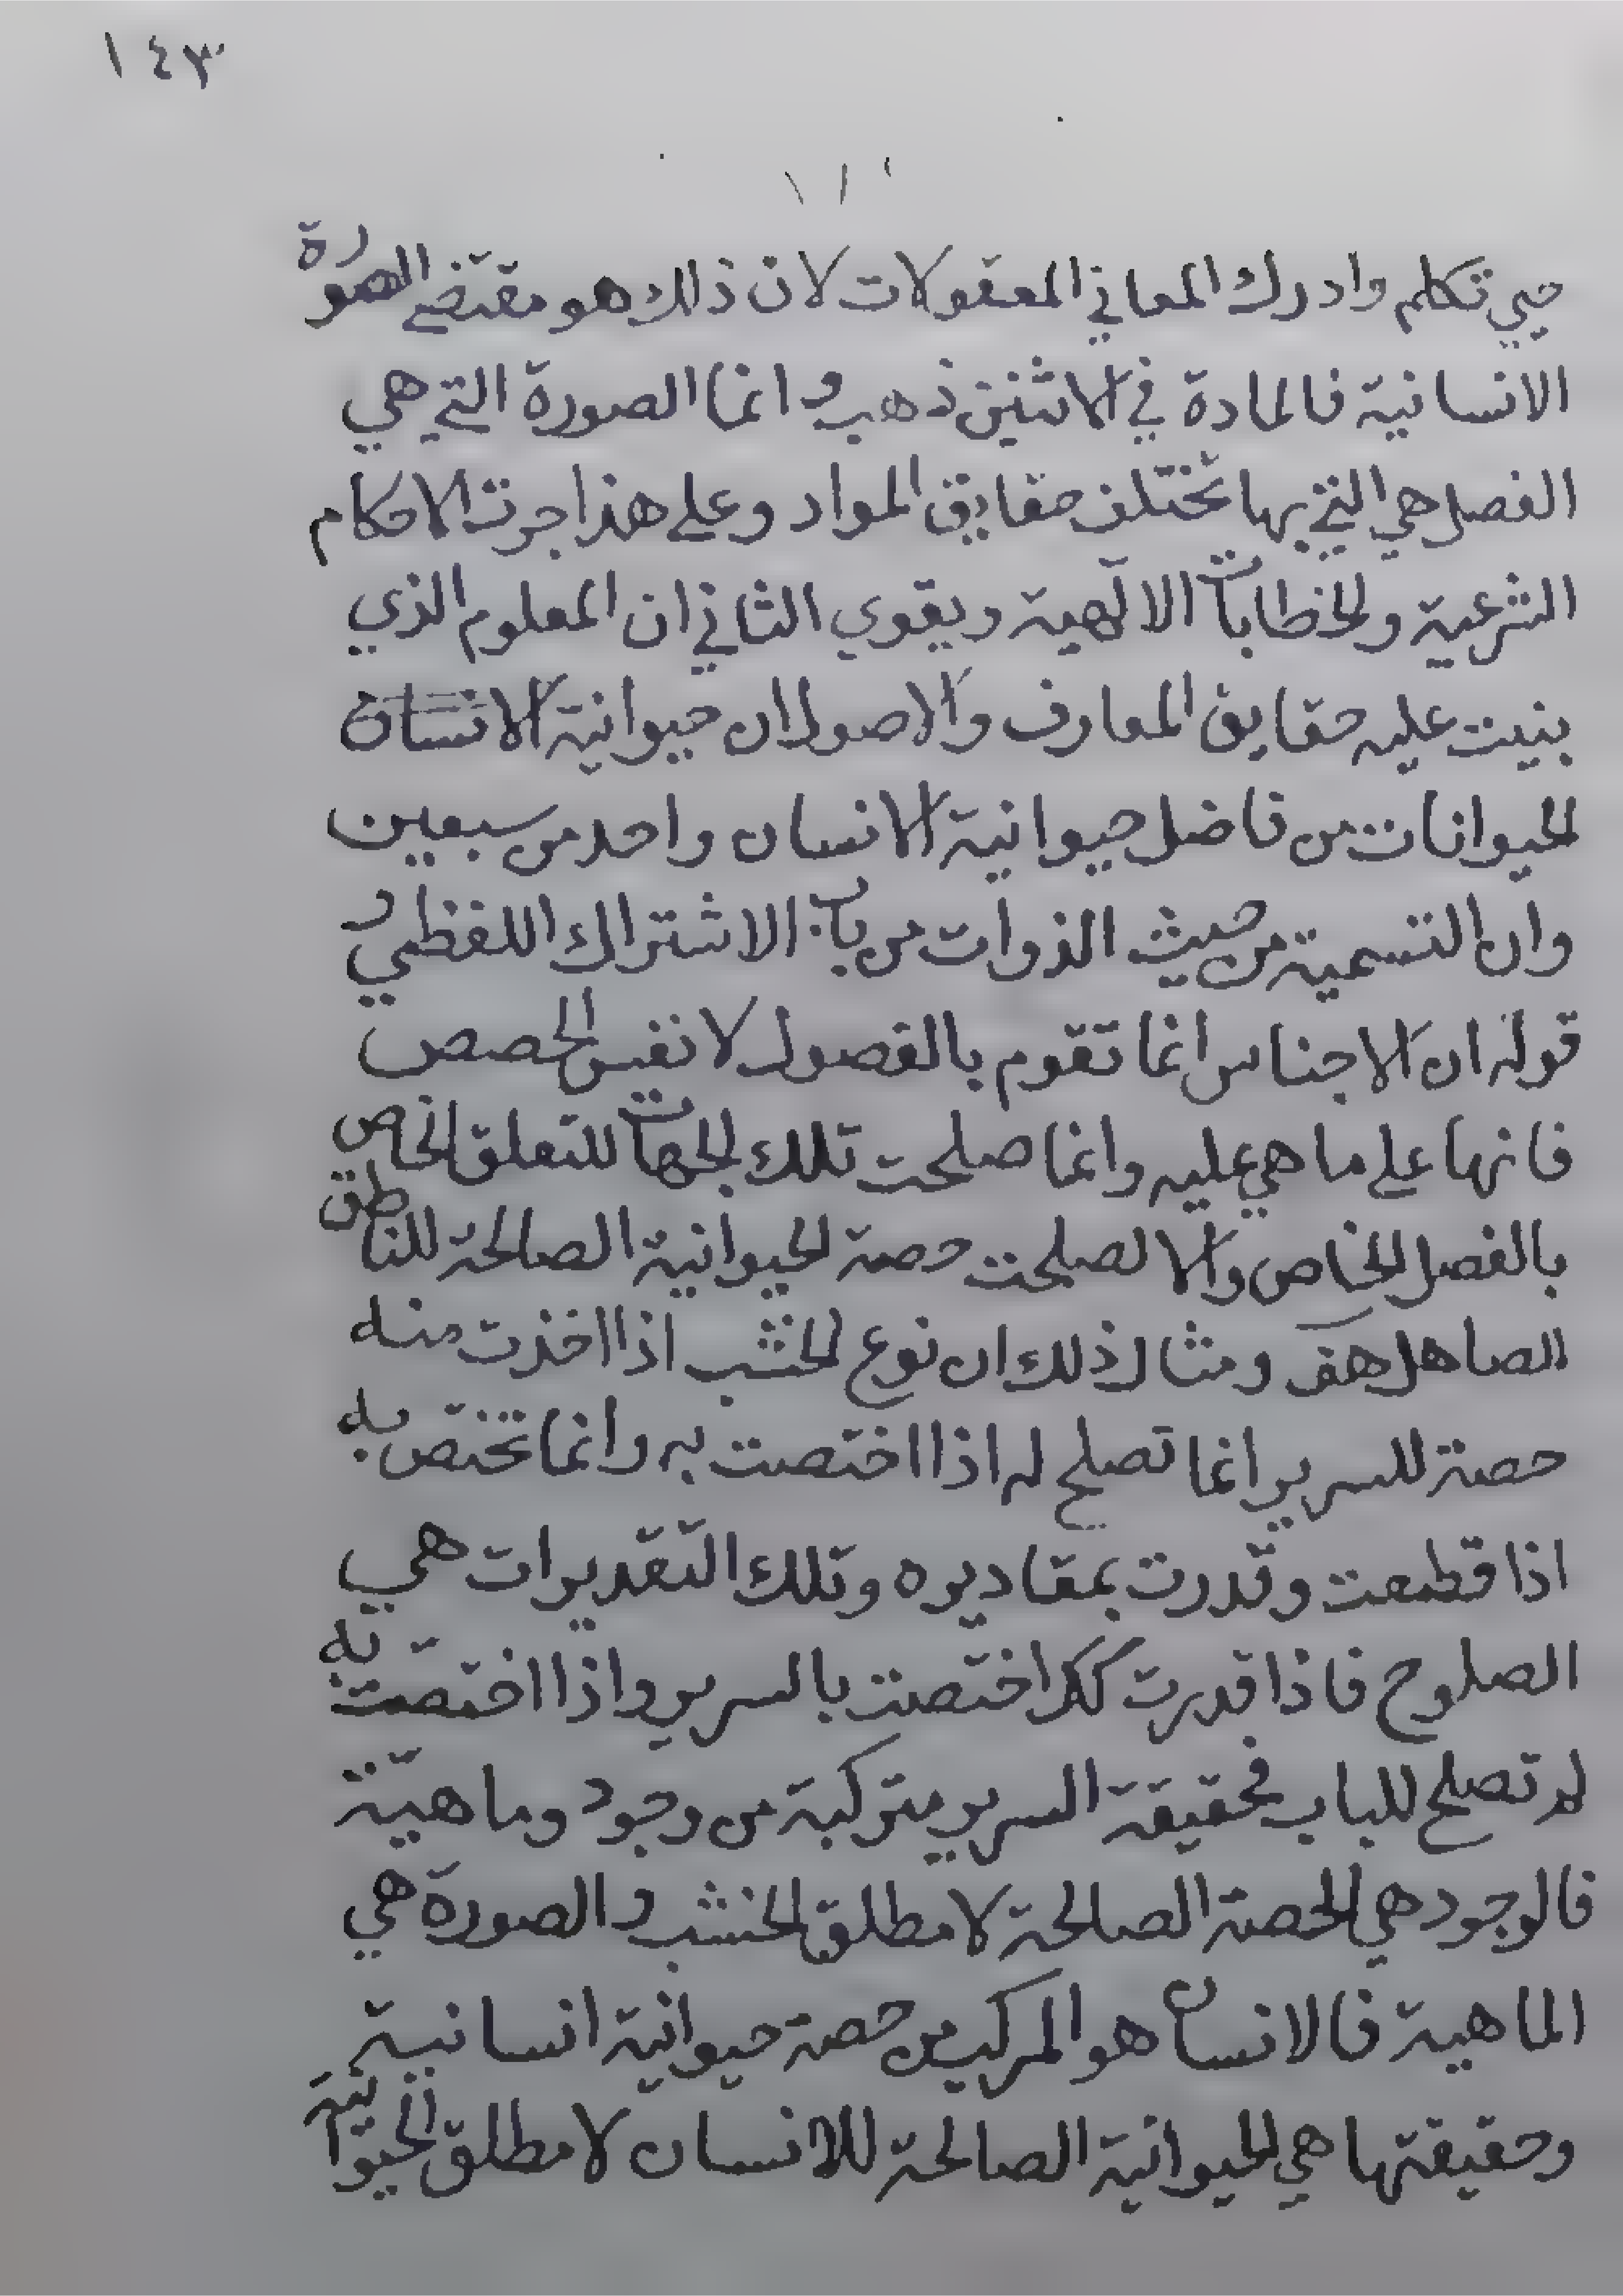 ١٤٣
حيي تكلم وادرك المعاني المعقولات لان ذلك هو مقتضى الصورة
الانسانية فالمادة في الاثنين ذهب وانما الصورة التي هي
الفصل هي التي بها تختلف حقايق المواد وعلى هذا جرت الاحكام
الشرعية والخطابات الالهية ويقوي الثاني ان المعلوم الذي
بنيت عليه حقايق المعارف والاصول ان حيوانية الانسان
الحيوانات من فاضل حيوانية الانسان واحد من سبعين
وان التسمية من حيث الذوات من باب الاشتراك اللفظي و
قوله ان الاجناس انما تقوم بالفصول لا نفس الحصص
فانها على ما هي عليه وانما صلحت تلك الجهات للتعلق الخاص
بالفصل الخاص والا لصلحت حصة الحيوانية الصالحة للناطق
الصاهل هف ومثال ذلك ان نوع الخشب اذا اخذت منه
حصة للسرير انما تصلح له اذا اختصت به وانما تختص به
اذا قطعت وقدرت بمقاديره وتلك التقديرات هي
الصلوح فاذا قدرت كك اختصت بالسرير واذا اختصت به
لم تصلح للباب فحقيقة السرير متركبة من وجود وماهية
فالوجود هي الحصة الصالحة لا مطلق الخشب والصورة هي
الماهية فالانسان هو المركب من حصة حيوانية انسانية
وحقيقتها هي الحيوانية الصالحة للانسان لا مطلق الحيوانية